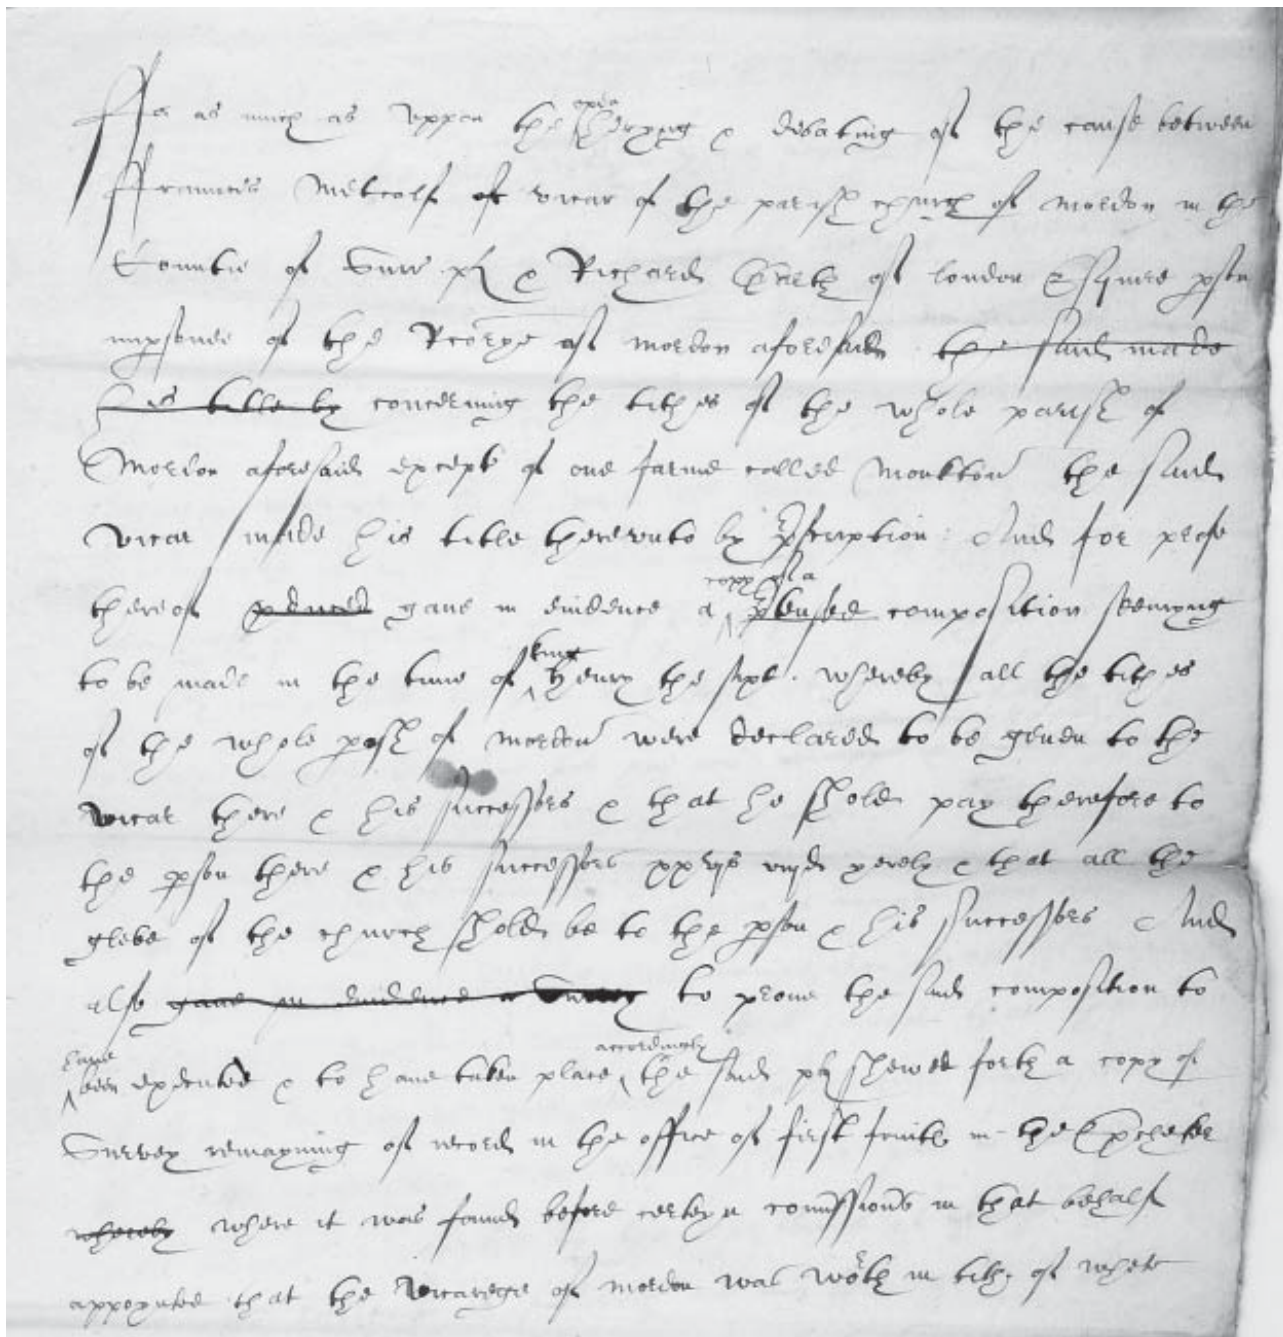 ffor as much as uppon the open heryng & debating of the cause between
ffrauncis Metcalf vicar of the parish church of mordon in the
Countie of Surr & Richard Garth of london Esquire pson
impsonee of the Rectorye of mordon aforesaid the said made
his title by concerning the tithes of the whole parish of
Mordon aforesaid except of one farme called Monkton the said
vicar made his title therevnto by pscription And for profe
thereof gaue in euidence a copy of a composition seemyng
to be made in the time of king Henry the sixt whereby all the tithes
of the whole pish of mordon were declared to be geuen to the
vicar there & his successors & that he shold pay therefore to
the pson there & his successors yerely & that all the
glebe of the church shold be to the pson & his successors And
also gaue in euidence a Survey to proue the said composition to
haue been executed & to haue taken place accordingly the said shewed forth a copy of
Survey remayning of record in the office of first fruites in the Exchequer
whereby where it was found before certeyn comissions in that behalf
appoynted that the vicarege of mordon was worth in tith of whete